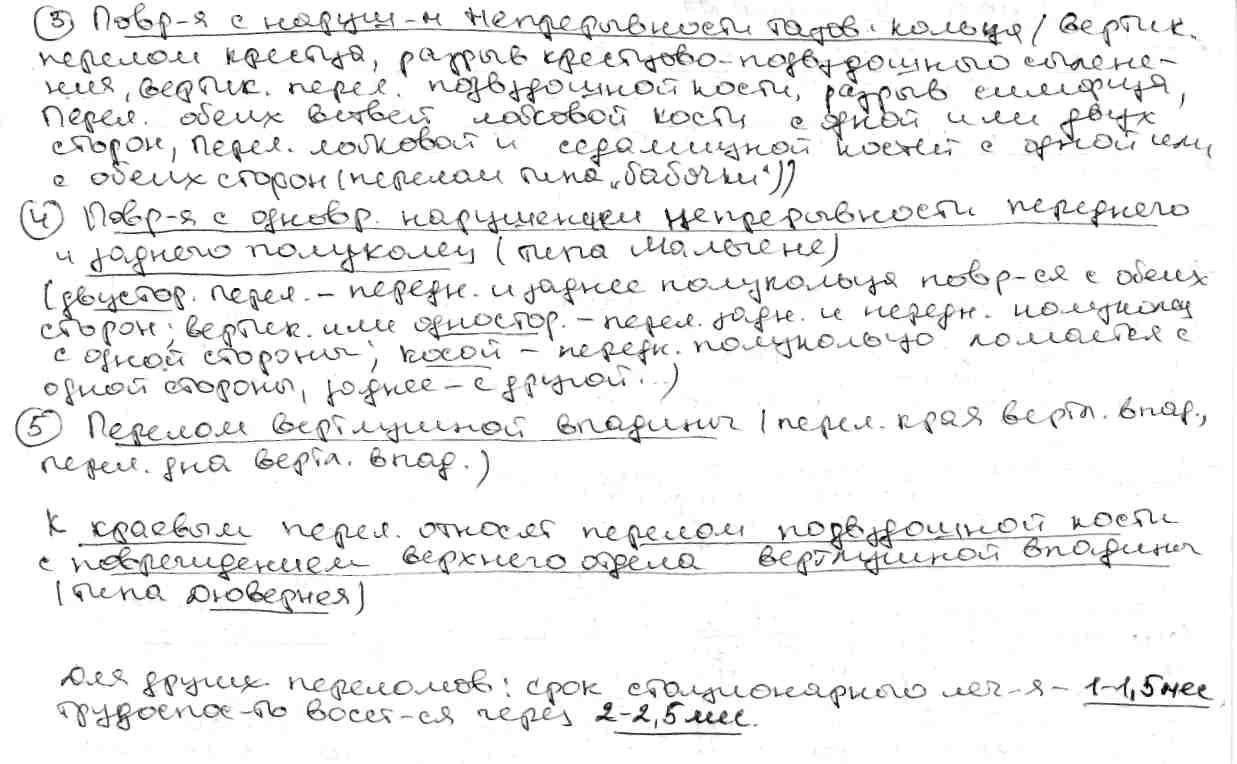 ③ Повр-я с наруш-м непрерывности тазов. кольца (вертик.
перелом крестца, разрыв крестцово-подвздошного сочлене-
ния, вертик. перел. подвздошной кости, разрыв симфиза,
перел. обеих ветвей лобковой кости с одной или двух
сторон, перел. лобковой и седалищной костей с одной или
с обеих сторон (перелом типа „бабочки"))
④ Повр-я с одновр. нарушением непрерывности переднего
и заднего полуколец (типа Мальгене)
(двустор. перел. – передн. и заднее полукольца повр-ся с обеих
сторон; вертик. или одностор. – перел. задн. и передн. полуколец
с одной стороны; косой – передн. полукольцо ломается с
одной стороны, заднее – с другой...)
⑤ Перелом вертлужной впадины (перел. края вертл. впад.,
перел. дна вертл. впад.)
К краевым перел. относят перелом подвздошной кости
с повреждением верхнего отдела вертлужной впадины
(типа Дювернея)
Для других переломов: срок стационарного леч-я – 1-1,5 мес
трудоспос-ть восст-ся через 2-2,5 мес.